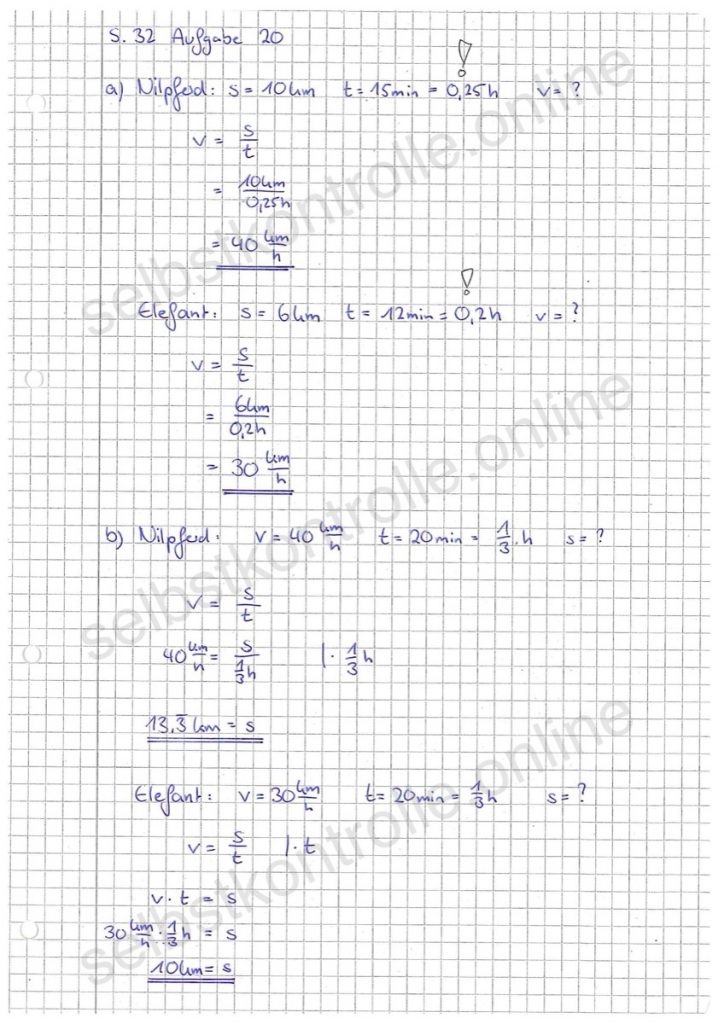 S. 32 Aufgabe 20
!
a) Nilpferd: s = 10km t = 15min = 0,25h v = ?
v = s/t
= 10km/0,25h
= 40 km/h
!
Elefant: s = 6km t = 12min = 0,2h v = ?
v = s/t
= 6km/0,2h
= 30 km/h
b) Nilpferd: v = 40 km/h t = 20min = 1/3 h s = ?
v = s/t
40 km/h = s/(1/3 h) | · 1/3 h
13,3̅ km = s
Elefant: v = 30 km/h t = 20min = 1/3 h s = ?
v = s/t | · t
v · t = s
30 km/h · 1/3 h = s
10km = s
selbstkontrolle.online
selbstkontrolle.online
selbstkontrolle.online